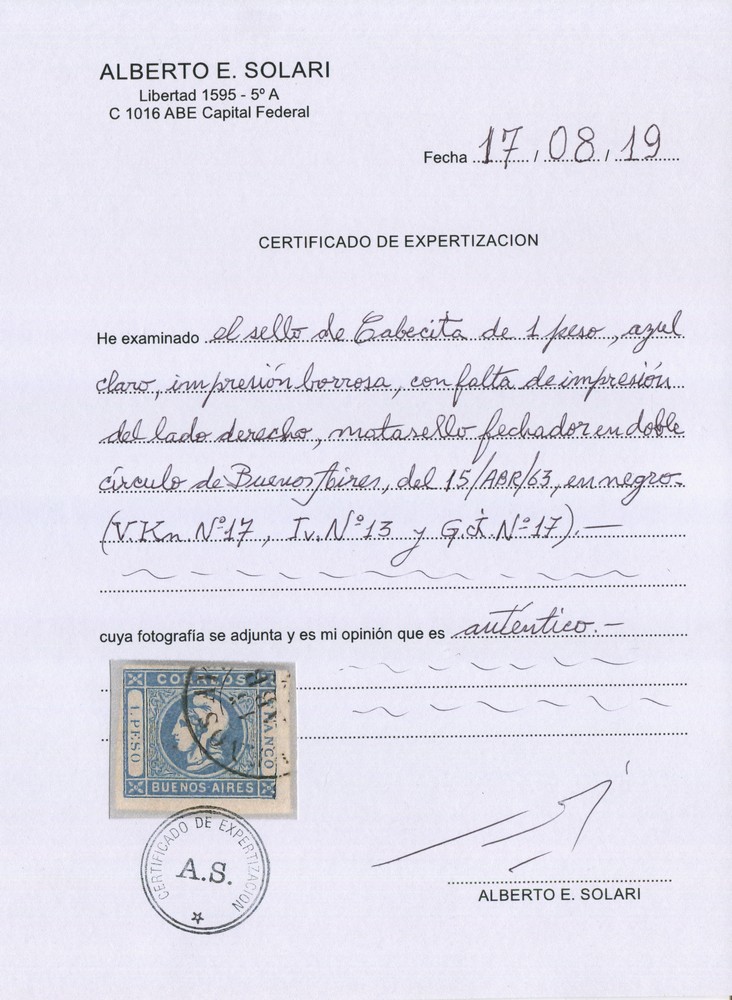 ALBERTO E. SOLARI
Libertad 1595 - 5º A
C 1016 ABE Capital Federal
Fecha 17 / 08 / 19
CERTIFICADO DE EXPERTIZACION
He examinado el sello de Cabecita de 1 peso, azul
claro, impresión borrosa, con falta de impresión
del lado derecho, matasello fechador en doble
círculo de Buenos Aires, del 15/ABR/63, en negro.
(VKn Nº17, Iv. Nº13 y G.J. Nº17).—
cuya fotografía se adjunta y es mi opinión que es auténtico.—
CORREOS
1. PESO
FRANCO
BUENOS AIRES
CERTIFICADO DE EXPERTIZACION
A.S.
ALBERTO E. SOLARI